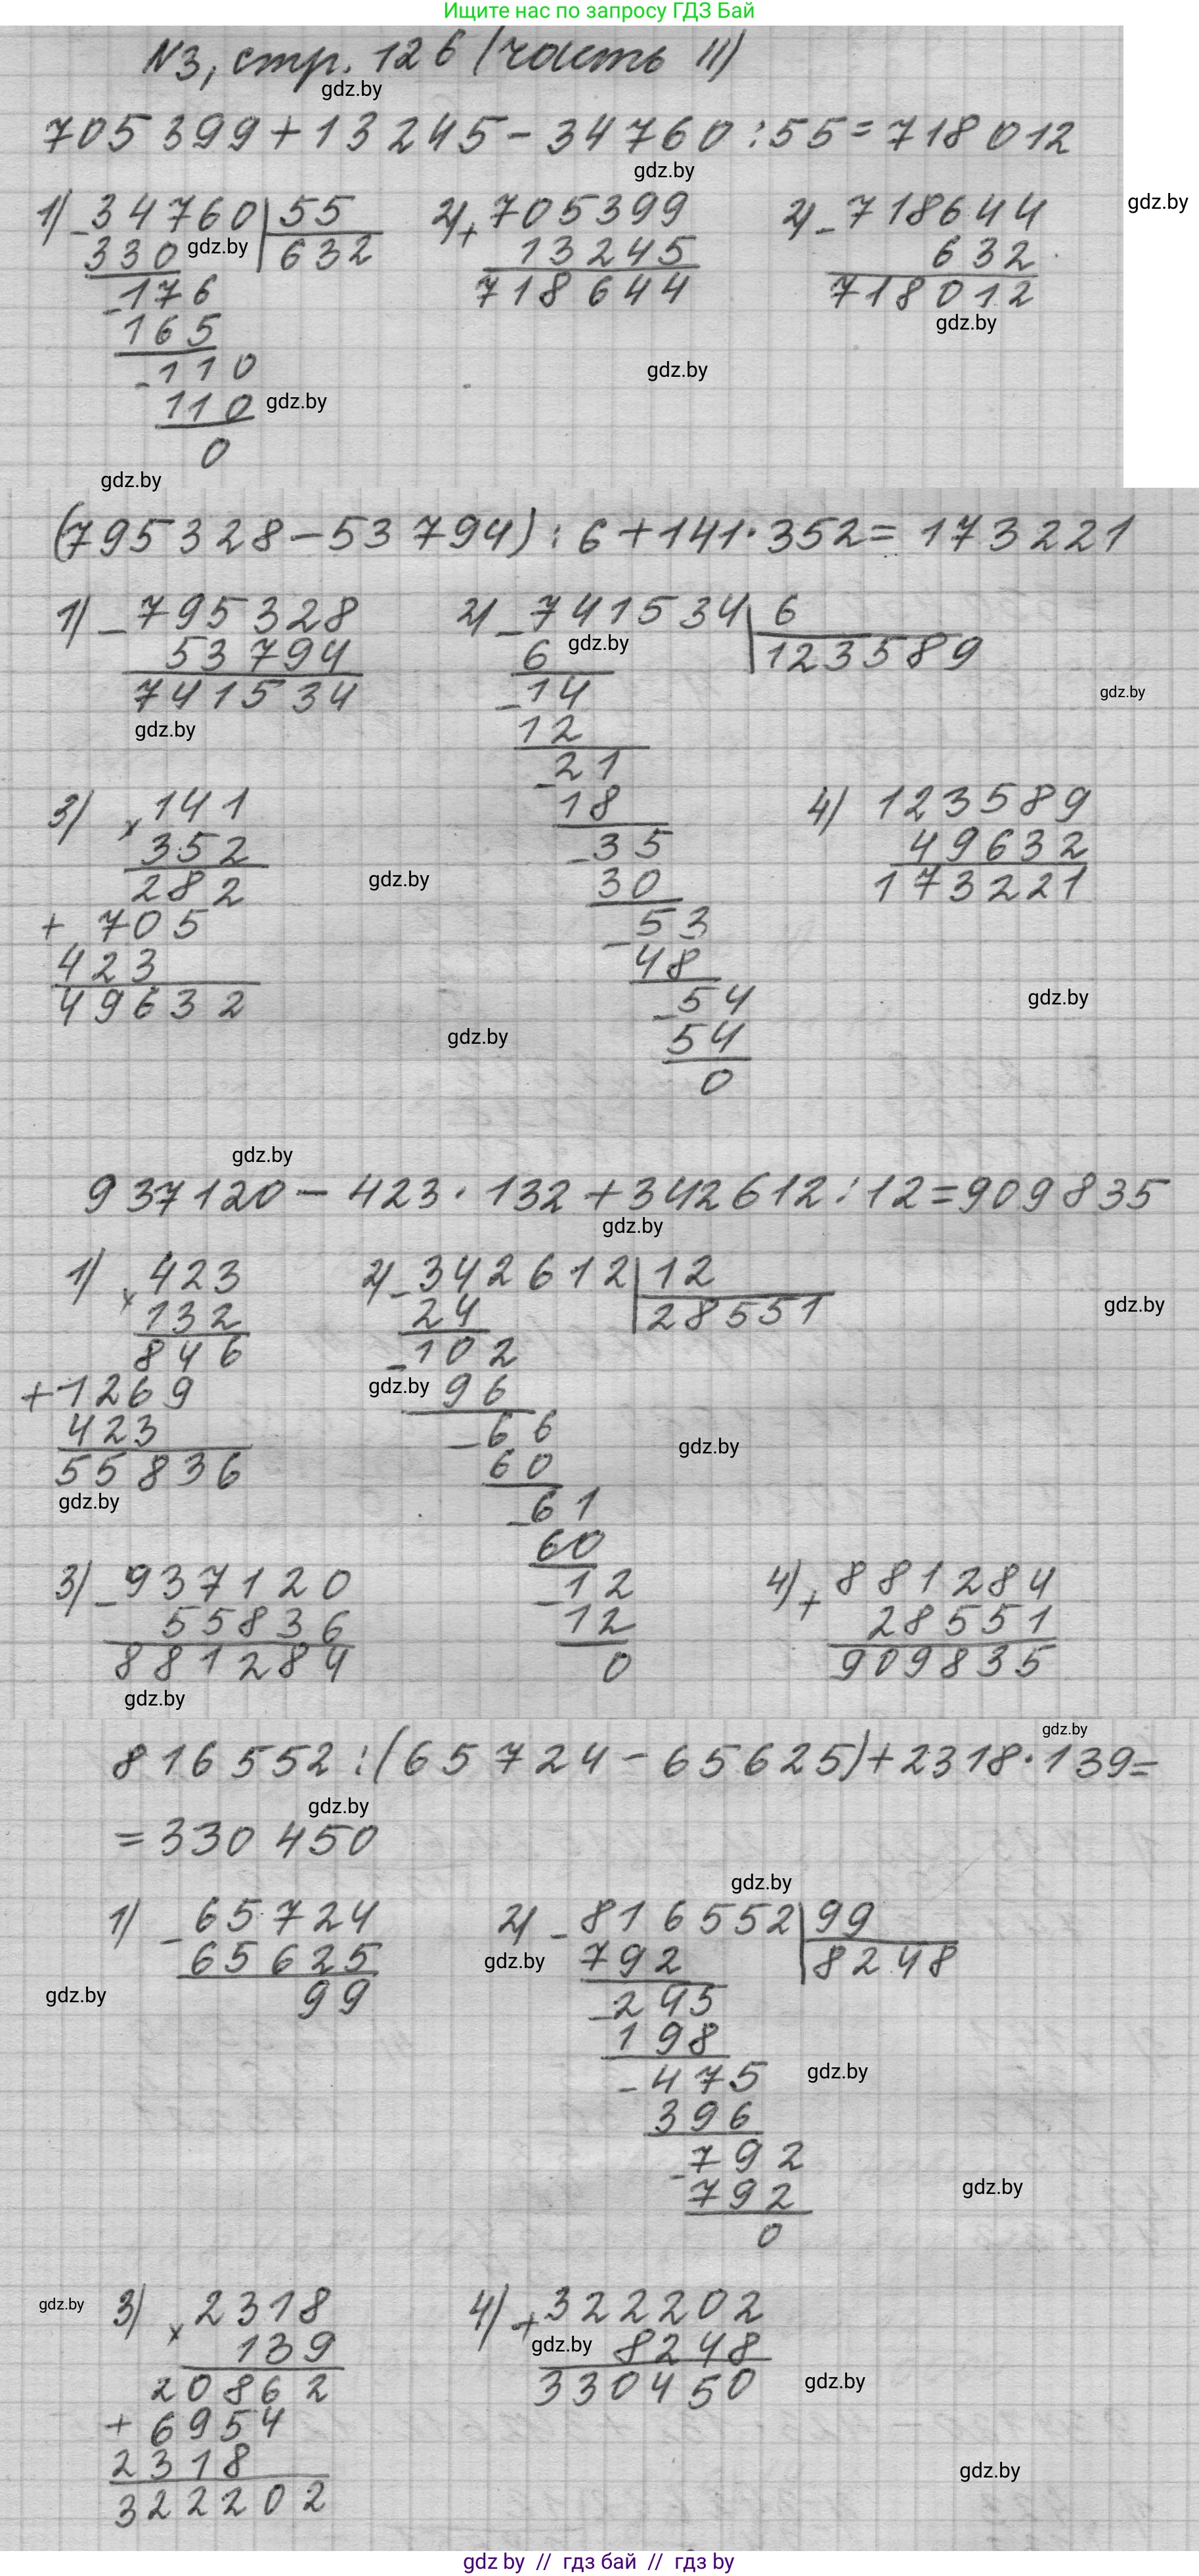 Ищите нас по запросу ГДЗ Бай
N3, стр. 126 (часть II)
gdz.by
705 399 + 13 245 - 34 760 : 55 = 718 012
gdz.by
1) - 34760 | 55 2) + 705399 2) - 718644 gdz.by
330 gdz.by 632 13245 632
- 176 718644 718012
165 gdz.by
- 110 gdz.by
110 gdz.by
0
gdz.by
(795 328 - 53 794) : 6 + 141 · 352 = 173 221
1) - 795328 2) - 741534 | 6
53794 6 gdz.by 123589
741534 - 14 gdz.by
gdz.by 12
- 21
3) × 141 18 4) 123589
352 - 35 49632
282 gdz.by 30 173221
+ 705 - 53
423 48
49632 - 54 gdz.by
gdz.by 54
0
gdz.by
937120 - 423 · 132 + 342612 : 12 = 909835
gdz.by
1) × 423 2) - 342612 | 12
132 24 28551 gdz.by
846 - 102
+ 1269 gdz.by 96
423 - 66 gdz.by
55836 60
gdz.by - 61
60
3) - 937120 - 12 4) + 881284
55836 12 28551
881284 0 909835
gdz.by
gdz.by
816 552 : (65 724 - 65 625) + 2318 · 139 =
gdz.by
= 330 450
gdz.by
1) - 65724 2) - 816552 | 99
65625 gdz.by 792 8248
gdz.by 99 - 245
198
- 475 gdz.by
396
- 792
792 gdz.by
0
gdz.by 3) × 2318 4) + 322202
139 gdz.by 8248
20862 330450 gdz.by
+ 6954
2318 gdz.by
322202
gdz by // гдз бай // гдз by